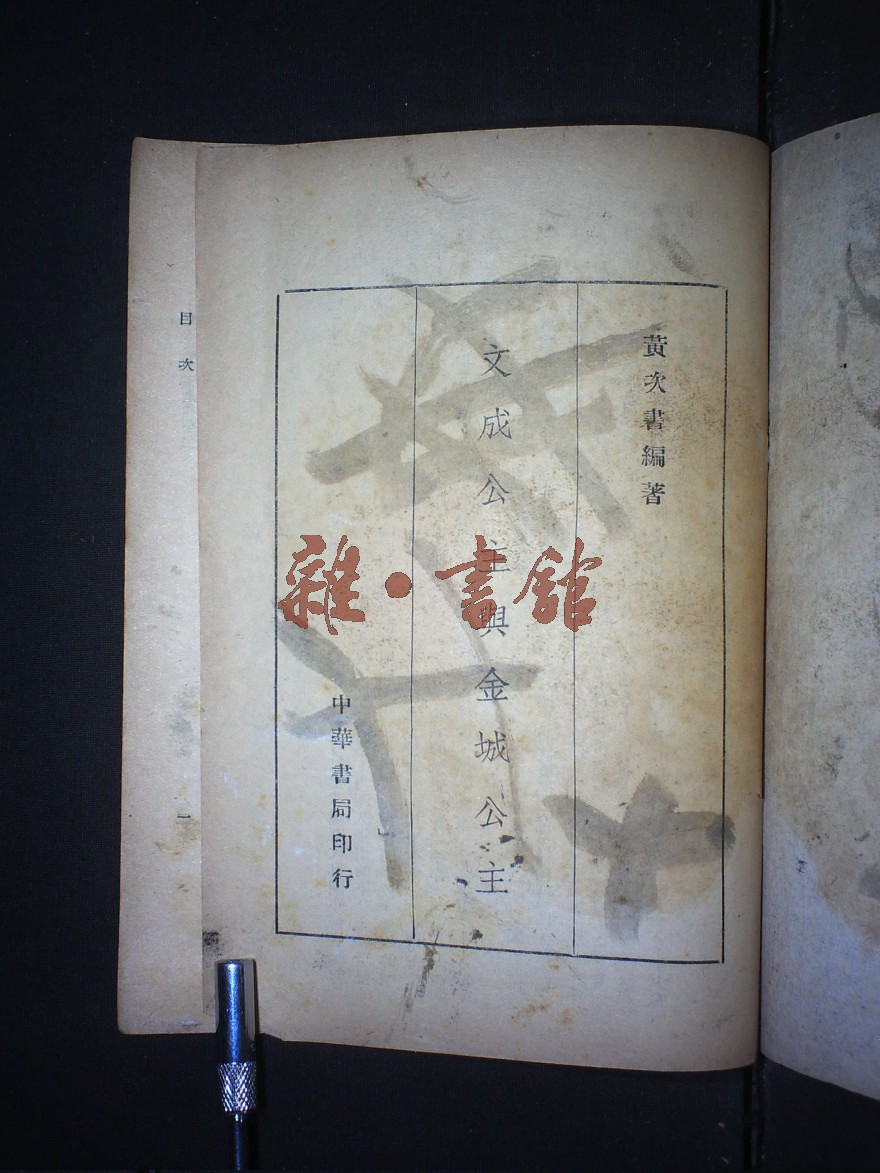 黃次書編著
文成公主與金城公主
中華書局印行
雜·書館
目次
一